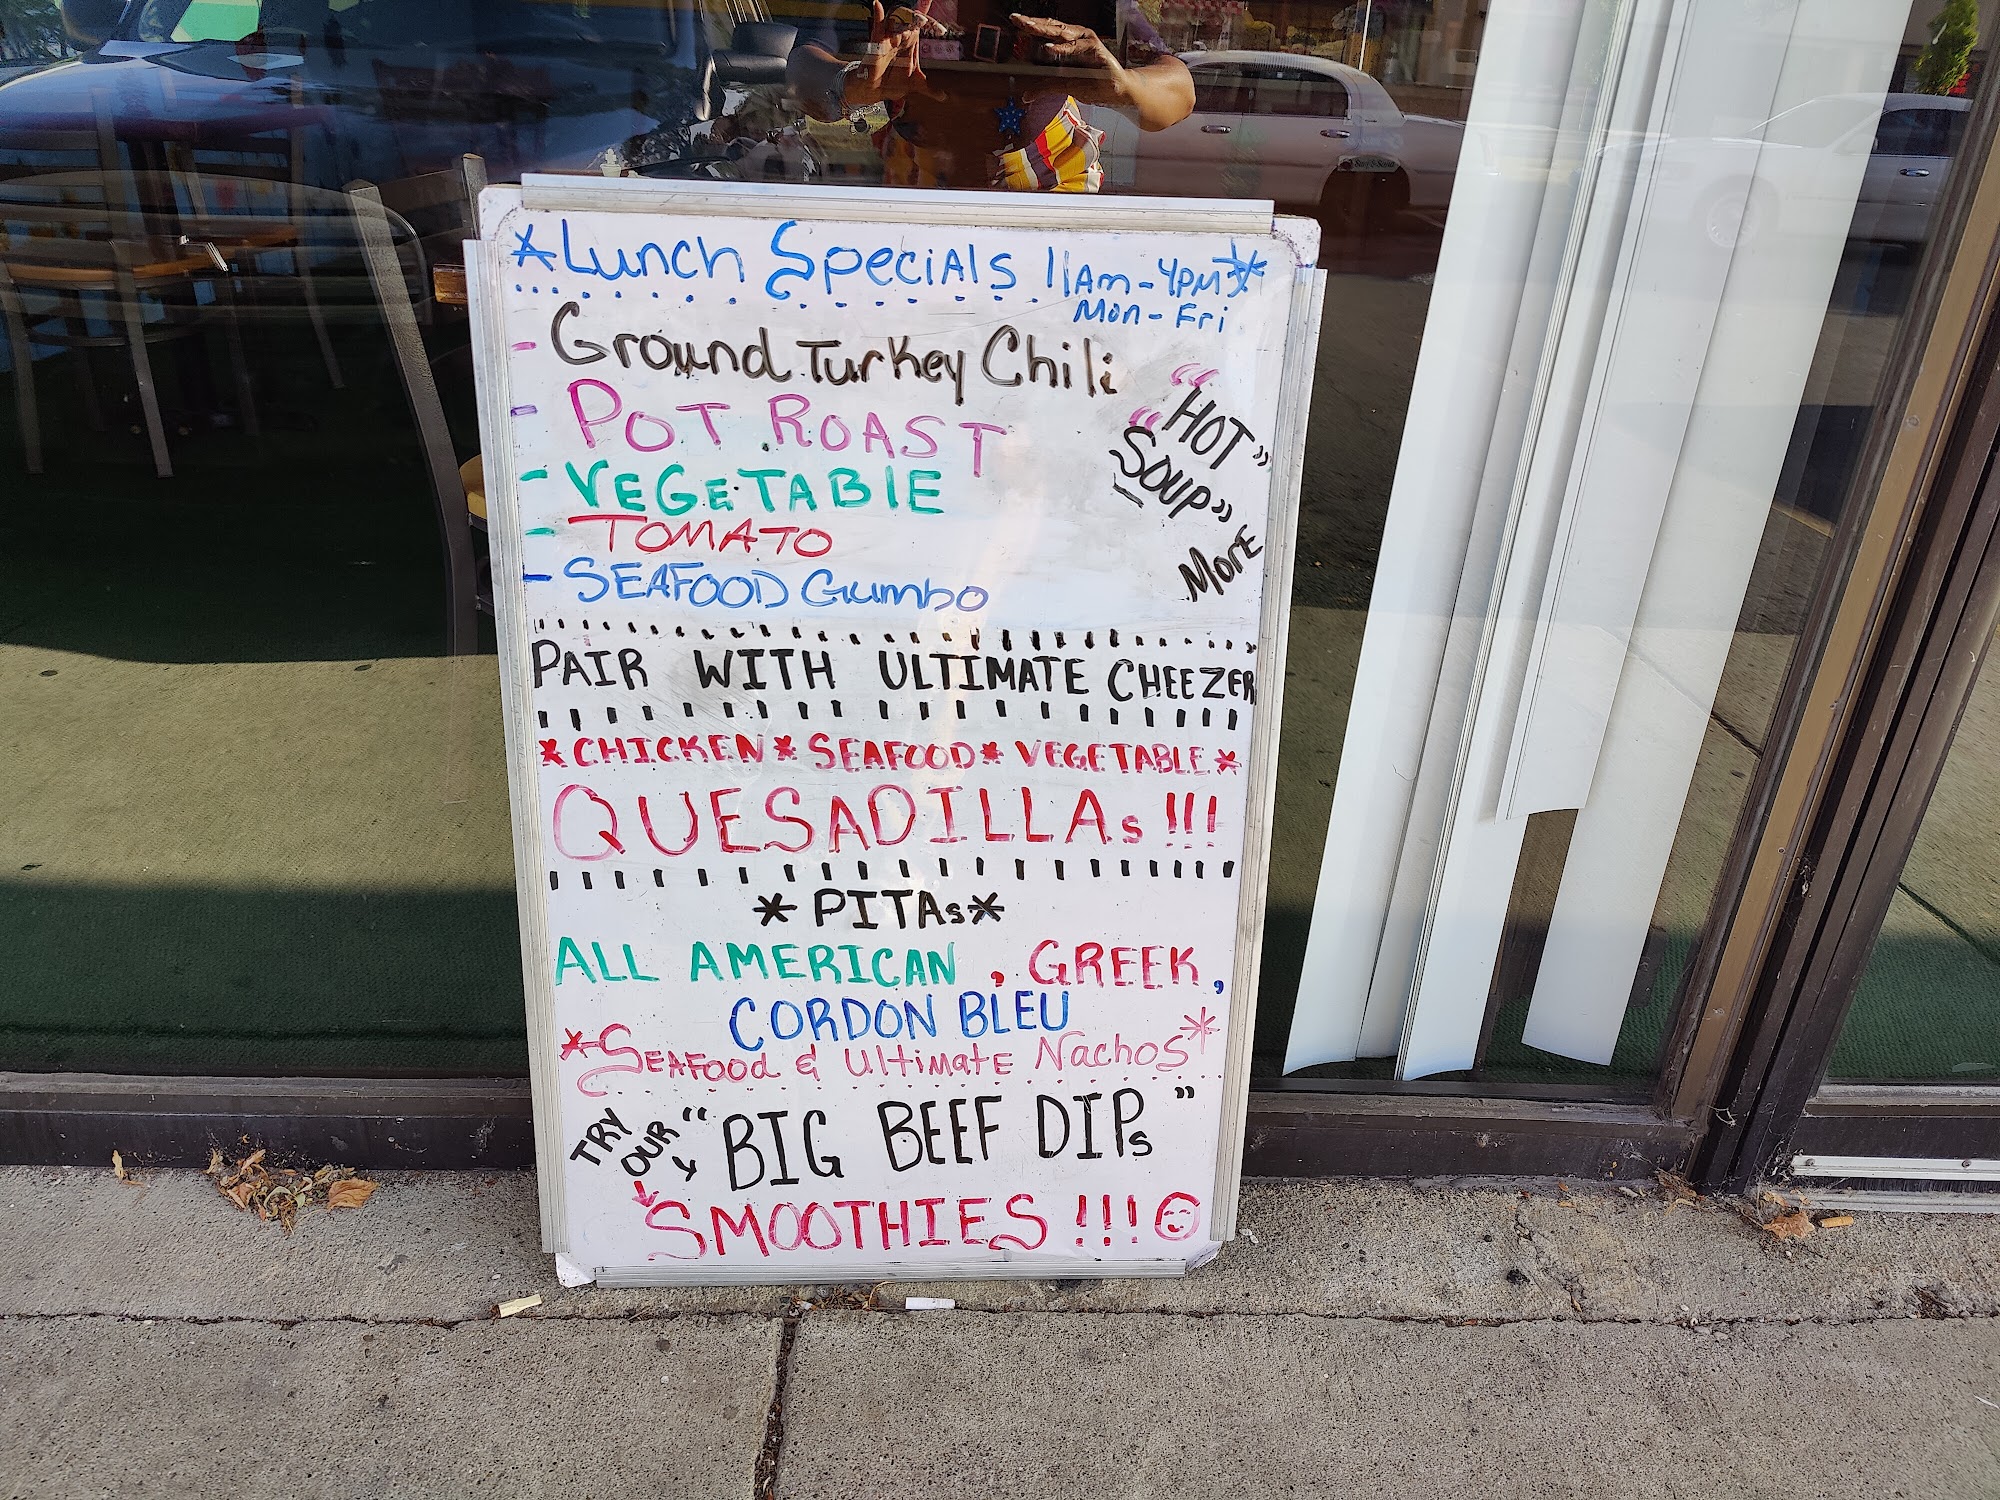 *Lunch Specials 11Am-4PM**
Mon-Fri
- Ground Turkey Chili
- POT ROAST
- VEGETABLE
- TOMATO
- SEAFOOD Gumbo
"HOT"
"SOUP"
MorE
PAIR WITH ULTIMATE CHEEZER
*CHICKEN*SEAFOOD*VEGETABLE*
QUESADILLAs!!!
*PITAs*
ALL AMERICAN, GREEK,
CORDON BLEU
*SEAFood & Ultimate Nachos*
TRY OUR "BIG BEEF DIPs"
SMOOTHIES!!!